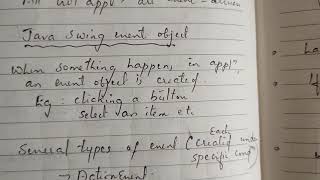 Java swing event object
When something happens in appl^n,
an event object is created.
Eg : clicking a button
select an item etc.
Several types of event (Each created under
specific cond^n)
→ ActionEvent